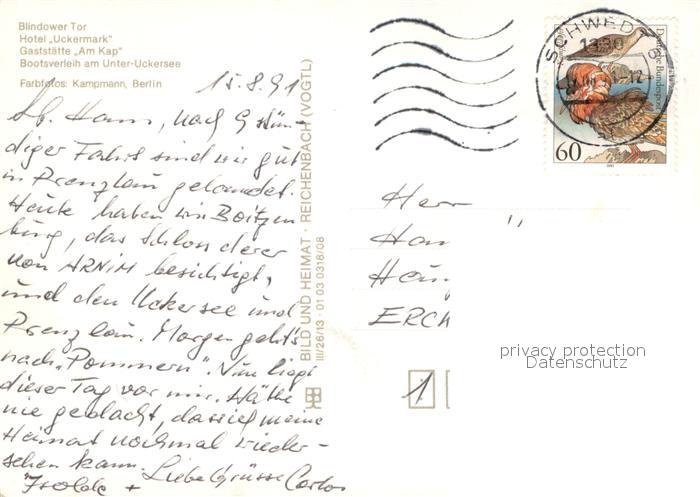 Blindower Tor
Hotel „Uckermark"
Gaststätte „Am Kap"
Bootsverleih am Unter-Uckersee
Farbfotos: Kampmann, Berlin
15.8.91
Lb. Hans, nach 9 stün-
diger Fahrt sind wir gut
in Prenzlau gelandet.
Heute haben wir Boitzen
burg, das Schloss derer
von ARNIM besichtigt,
und den Uckersee und
Prenzlau. Morgen geht's
nach „Pommern". Nun liegt
dieser Tag vor mir. Hätte
nie gedacht, dass ich meine
Heimat nochmal wieder-
sehen kann. Liebe Grüsse Carlos
Isolde +
BILD UND HEIMAT · REICHENBACH (VOGTL)
III/26/13 · 01 03 0316/08
SCHWEDT
1330
Deutsche Bundespost
60
Herr
ERCH
1
privacy protection
Datenschutz